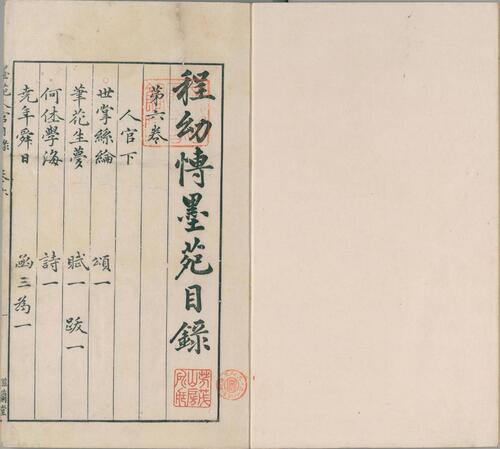 程幼博墨苑目錄
第六卷
人官下
世掌絲綸 頌一
筆花生夢 賦一 跋一
何休學海 詩一
堯年舜日 函三為一
墨苑人官目錄 卷六